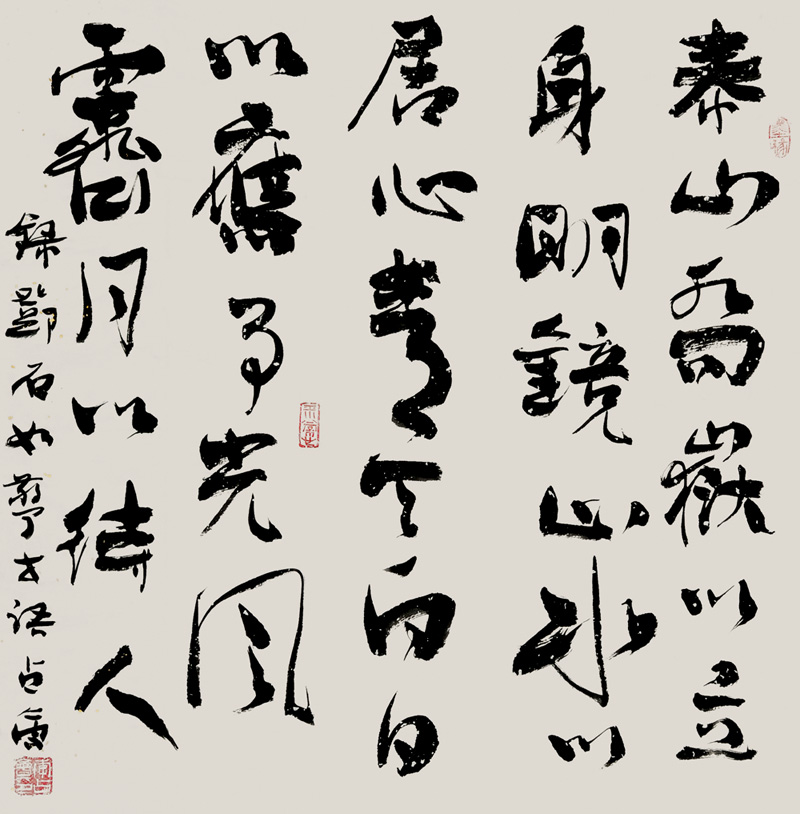 泰山喬嶽以立
身明鏡止水以
居心青天白日
以應事光風
霽月以待人
錄鄧石如語